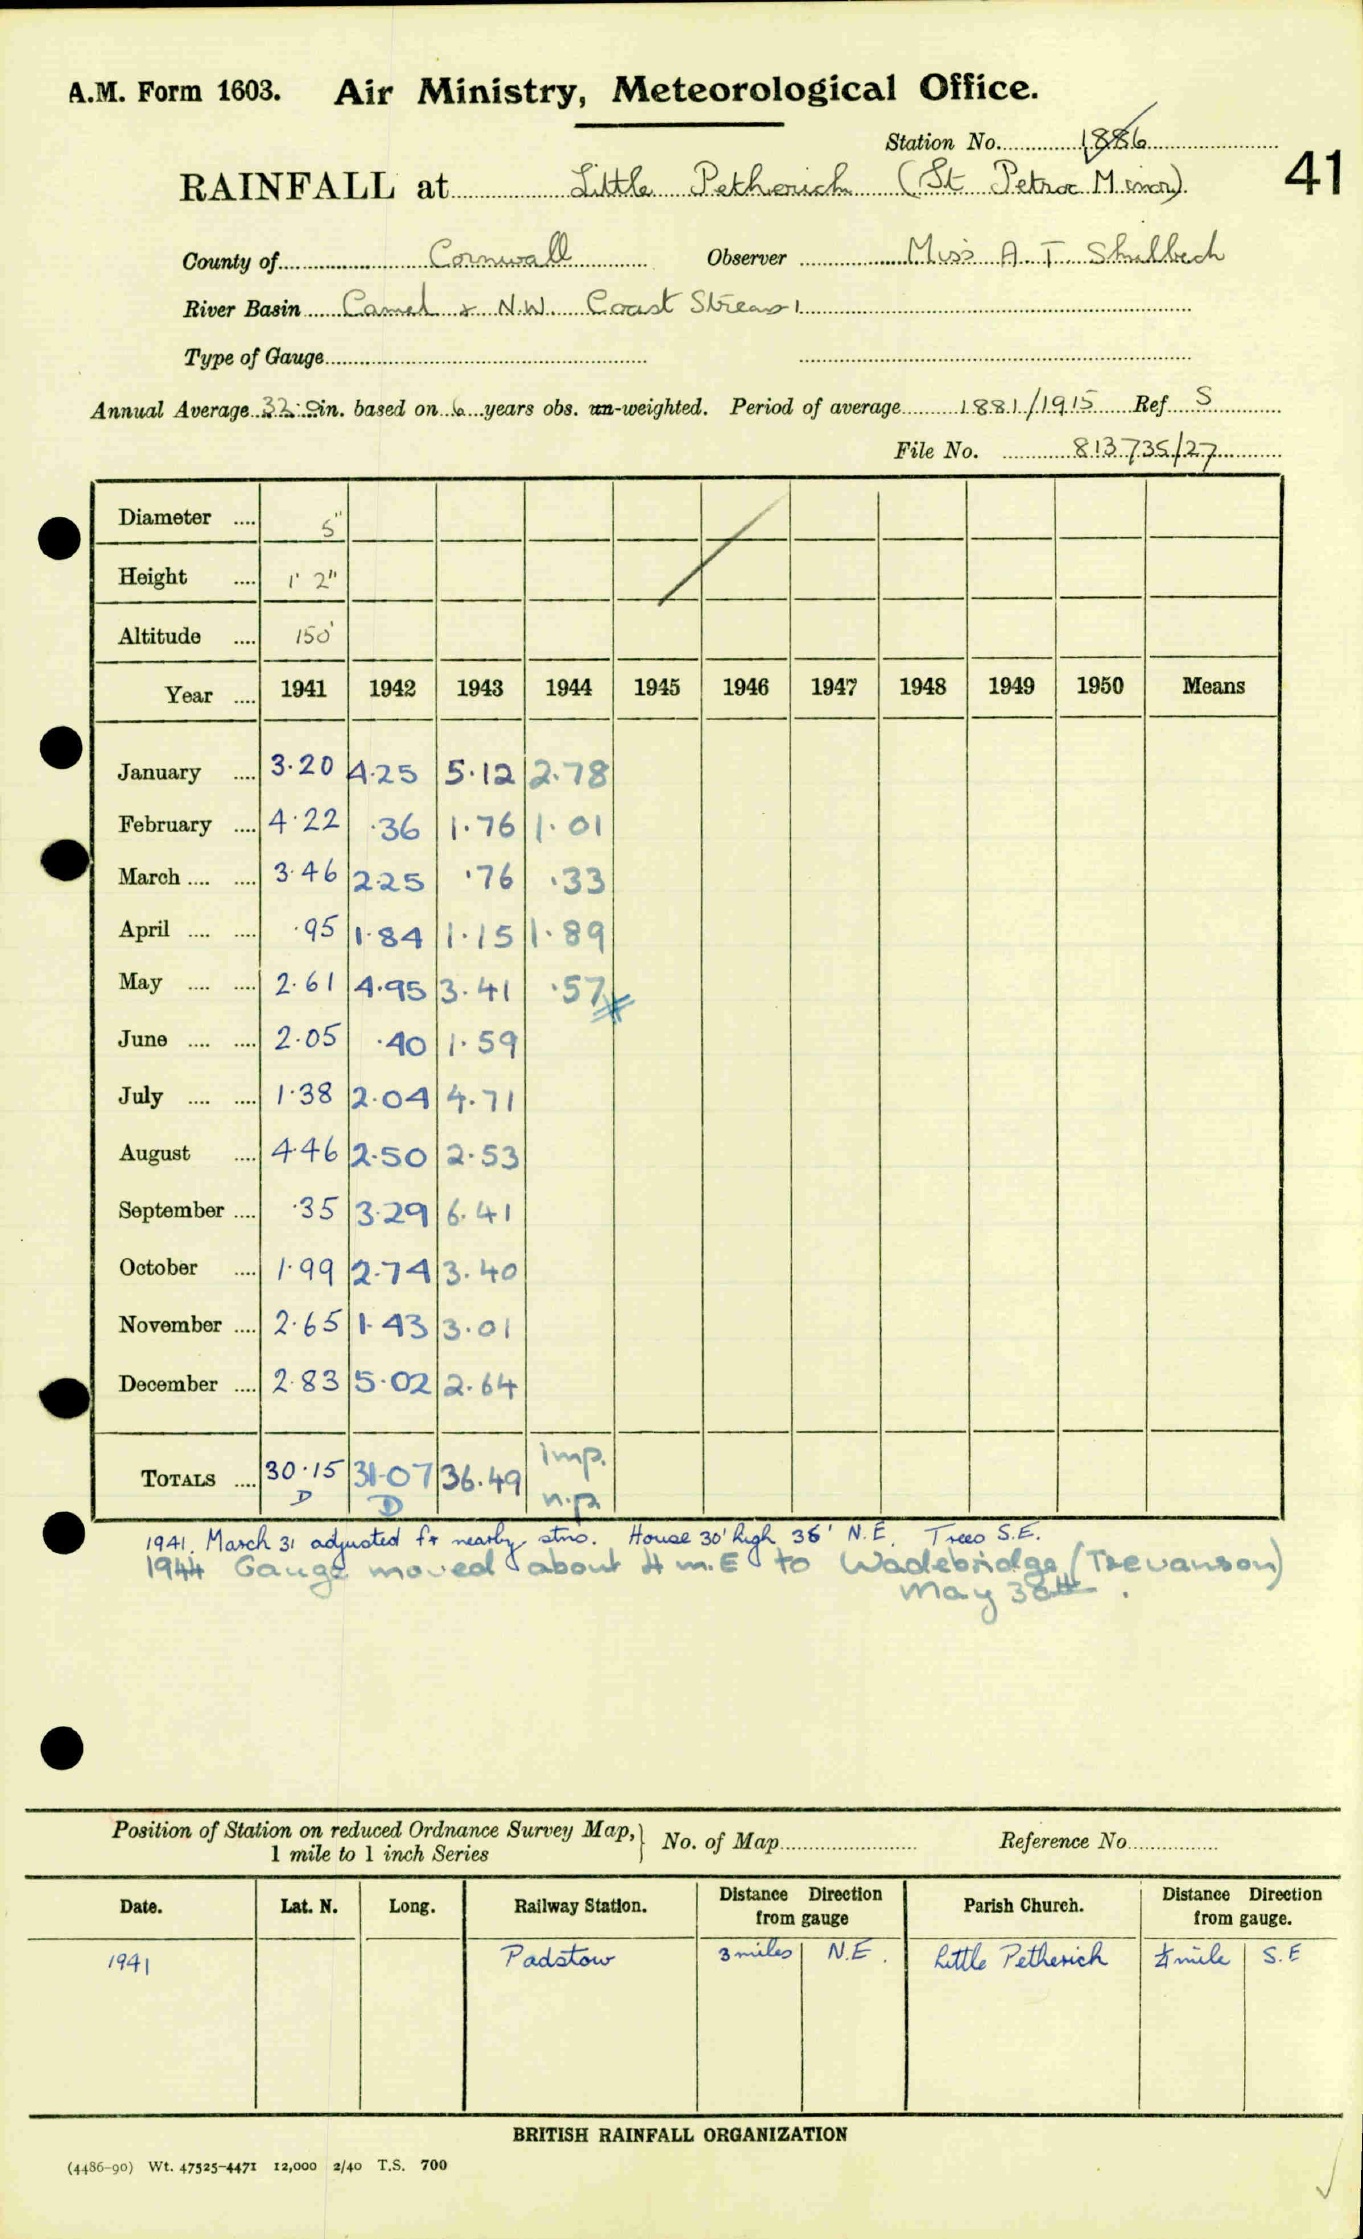 A.M. Form 1603. Air Ministry, Meteorological Office.
Station No. 1886
41
RAINFALL at Little Petherick (St Petroc Minor)
County of Cornwall Observer Miss A T
River Basin Camel & N.W. Coast Streams 1
Type of Gauge
Annual Average 32.0 in. based on 6 years obs. un-weighted. Period of average 1881/1915 Ref S
File No. 813735/27
Diameter .... 5"
Height .... 1' 2"
Altitude .... 150'
Year .... 1941 1942 1943 1944 1945 1946 1947 1948 1949 1950 Means
January .... 3.20 4.25 5.12 2.78
February .... 4.22 .36 1.76 1.01
March .... .... 3.46 2.25 .76 .33
April .... .... .95 1.84 1.15 1.89
May .... .... 2.61 4.95 3.41 .57
June .... .... 2.05 .40 1.59
July .... .... 1.38 2.04 4.71
August .... 4.46 2.50 2.53
September .... .35 3.29 6.41
October .... 1.99 2.74 3.40
November .... 2.65 1.43 3.01
December .... 2.83 5.02 2.64
TOTALS .... 30.15 31.07 36.49 Imp.
D D n.p.
1941. March 31 adjusted fr nearby stns. House 30' high 36' N.E. Trees S.E.
1944 Gauge moved about 4 m.E to Wadebridge (Trevanson)
May 30th.
Position of Station on reduced Ordnance Survey Map,} No. of Map Reference No.
1 mile to 1 inch Series
Date. Lat. N. Long. Railway Station. Distance Direction from gauge Parish Church. Distance Direction from gauge.
1941 Padstow 3 miles N.E. Little Petherick ¼ mile S.E
BRITISH RAINFALL ORGANIZATION
(4486-90) Wt. 47525-4471 12,000 2/40 T.S. 700